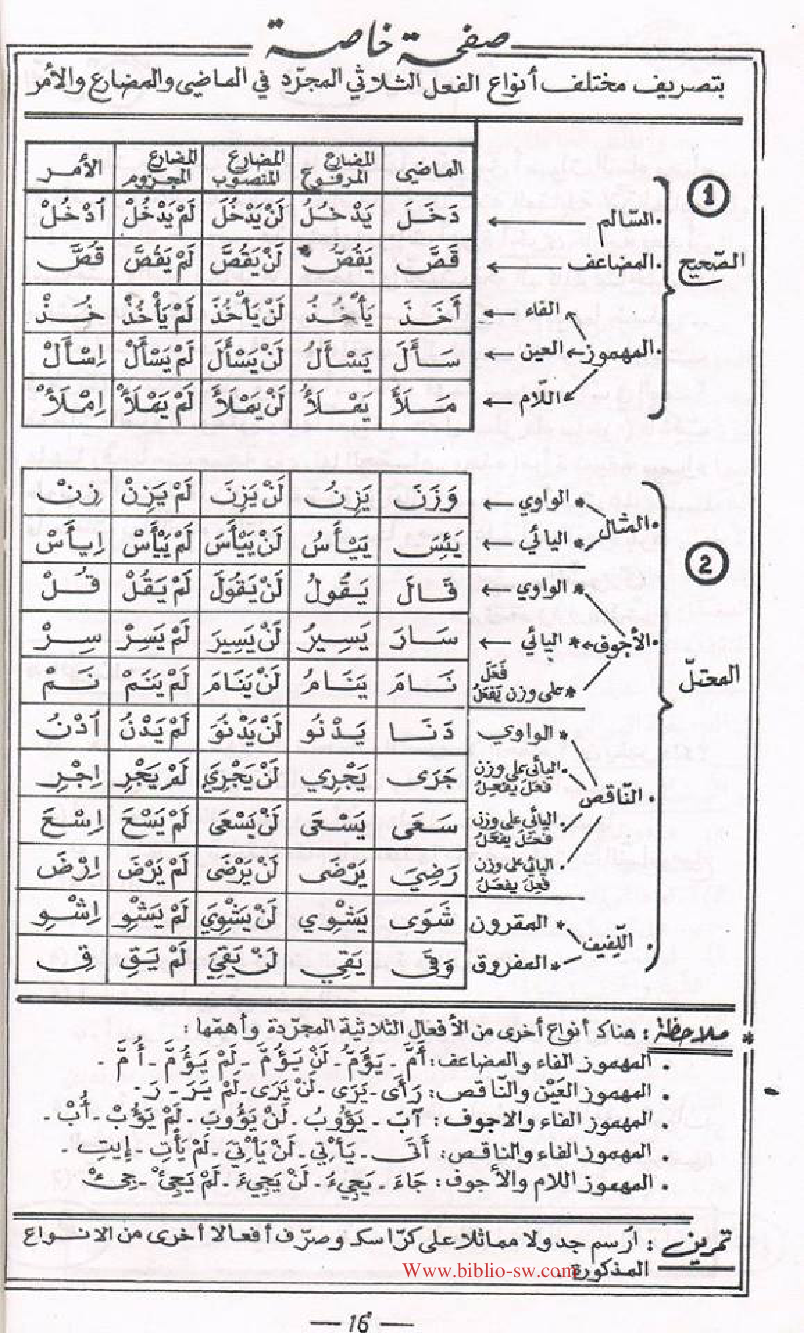 صفحة خاصة
بتصريف مختلف أنواع الفعل الثلاثي المجرّد في الماضي والمضارع والأمر
الماضي المضارع المرفوع المضارع المنصوب المضارع المجزوم الأمر
1 الصّحيح
السّالم دَخَلَ يَدْخُلُ لَنْ يَدْخُلَ لَمْ يَدْخُلْ اُدْخُلْ
المضاعف قَصَّ يَقُصُّ لَنْ يَقُصَّ لَمْ يَقُصَّ قُصَّ
المهموز
الفاء أَخَذَ يَأْخُذُ لَنْ يَأْخُذَ لَمْ يَأْخُذْ خُذْ
العين سَأَلَ يَسْأَلُ لَنْ يَسْأَلَ لَمْ يَسْأَلْ اِسْأَلْ
اللّام مَلَأَ يَمْلَأُ لَنْ يَمْلَأَ لَمْ يَمْلَأْ اِمْلَأْ
2 المعتلّ
المثال
الواوي وَزَنَ يَزِنُ لَنْ يَزِنَ لَمْ يَزِنْ زِنْ
اليائي يَئِسَ يَيْأَسُ لَنْ يَيْأَسَ لَمْ يَيْأَسْ اِيأَسْ
الأجوف
الواوي قَالَ يَقُولُ لَنْ يَقُولَ لَمْ يَقُلْ قُلْ
اليائي سَارَ يَسِيرُ لَنْ يَسِيرَ لَمْ يَسِرْ سِرْ
على وزن فَعَلَ يَفْعَلُ نَامَ يَنَامُ لَنْ يَنَامَ لَمْ يَنَمْ نَمْ
النّاقص
الواوي دَنَا يَدْنُو لَنْ يَدْنُوَ لَمْ يَدْنُ اُدْنُ
اليائي على وزن فَعَلَ يَفْعِلُ جَرَى يَجْرِي لَنْ يَجْرِيَ لَمْ يَجْرِ اِجْرِ
اليائي على وزن فَعَلَ يَفْعَلُ سَعَى يَسْعَى لَنْ يَسْعَى لَمْ يَسْعَ اِسْعَ
اليائي على وزن فَعِلَ يَفْعَلُ رَضِيَ يَرْضَى لَنْ يَرْضَى لَمْ يَرْضَ اِرْضَ
اللّفيف
المقرون شَوَى يَشْوِي لَنْ يَشْوِيَ لَمْ يَشْوِ اِشْوِ
المفروق وَقَى يَقِي لَنْ يَقِيَ لَمْ يَقِ قِ
* ملاحظة : هناك أنواع أخرى من الأفعال الثلاثية المجرّدة وأهمّها :
. المهموز الفاء والمضاعف: أَمَّ - يَؤُمُّ - لَنْ يَؤُمَّ - لَمْ يَؤُمَّ - أُمَّ -
. المهموز العَيْن والنّاقص: رَأَى - يَرَى - لَنْ يَرَى - لَمْ يَرَ - رَ -
. المهموز الفاء والاجوف: آبَ - يَؤُوبُ - لَنْ يَؤُوبَ - لَمْ يَؤُبْ - أُبْ -
. المهموز الفاء والناقص: أَتَى - يَأْتِي - لَنْ يَأْتِيَ - لَمْ يَأْتِ - إِيتِ -
. المهموز اللام والأجوف: جَاءَ - يَجِيءُ - لَنْ يَجِيءَ - لَمْ يَجِئْ - جِئْ
تمرين : ارسم جدولا مماثلا على كرّاسك وصرّف أفعالا أخرى من الانواع
المذكورة.
Www.biblio-sw.com
— 16 —